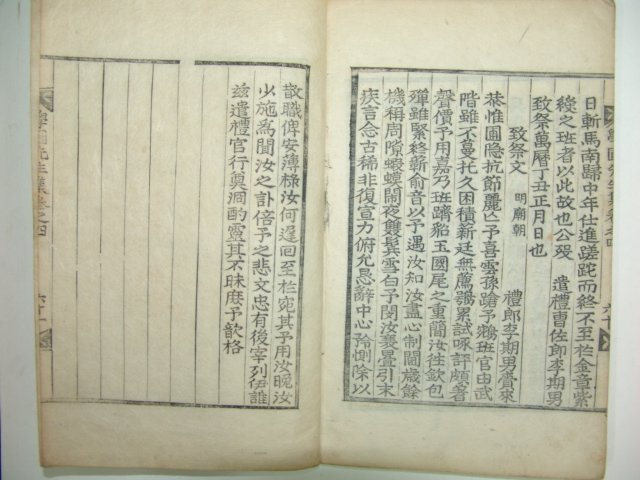 日斬馬南歸中年仕進蹉跎而終不至於金章紫
綬之班者以此故也公歿　遣禮曹佐郎李期男
致祭萬曆丁丑正月日也
致祭文　明廟朝
禮郎李期男賫來
恭惟圃隐抗節麗亡予喜雲孫蹌予鵷班官由武
階雖不蔓托久困積新廷無薦鶚累試啄評頗著
聲價予用嘉乃班躋貂玉國尾之重簡汝往欽包
殫雖緊終蘄俞音以予遇汝知汝盡心制閫歲餘
機稱周隙蝯蟆閙夜雙鬓雪白予閔汝衰畳引末
疾言念古稀非復宣力俯允恳辭中心矜惻除以
散職俾安薄祿汝何遅回至於宛其予用汝晩汝
少施爲聞汝之訃倍予之悲文忠有後宰列伊誰
兹遣禮官行奠洞酌靈其不昧庶予歆格
先生集卷之四
六十一